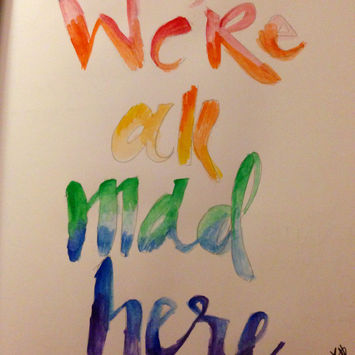 We're
all
mad
here